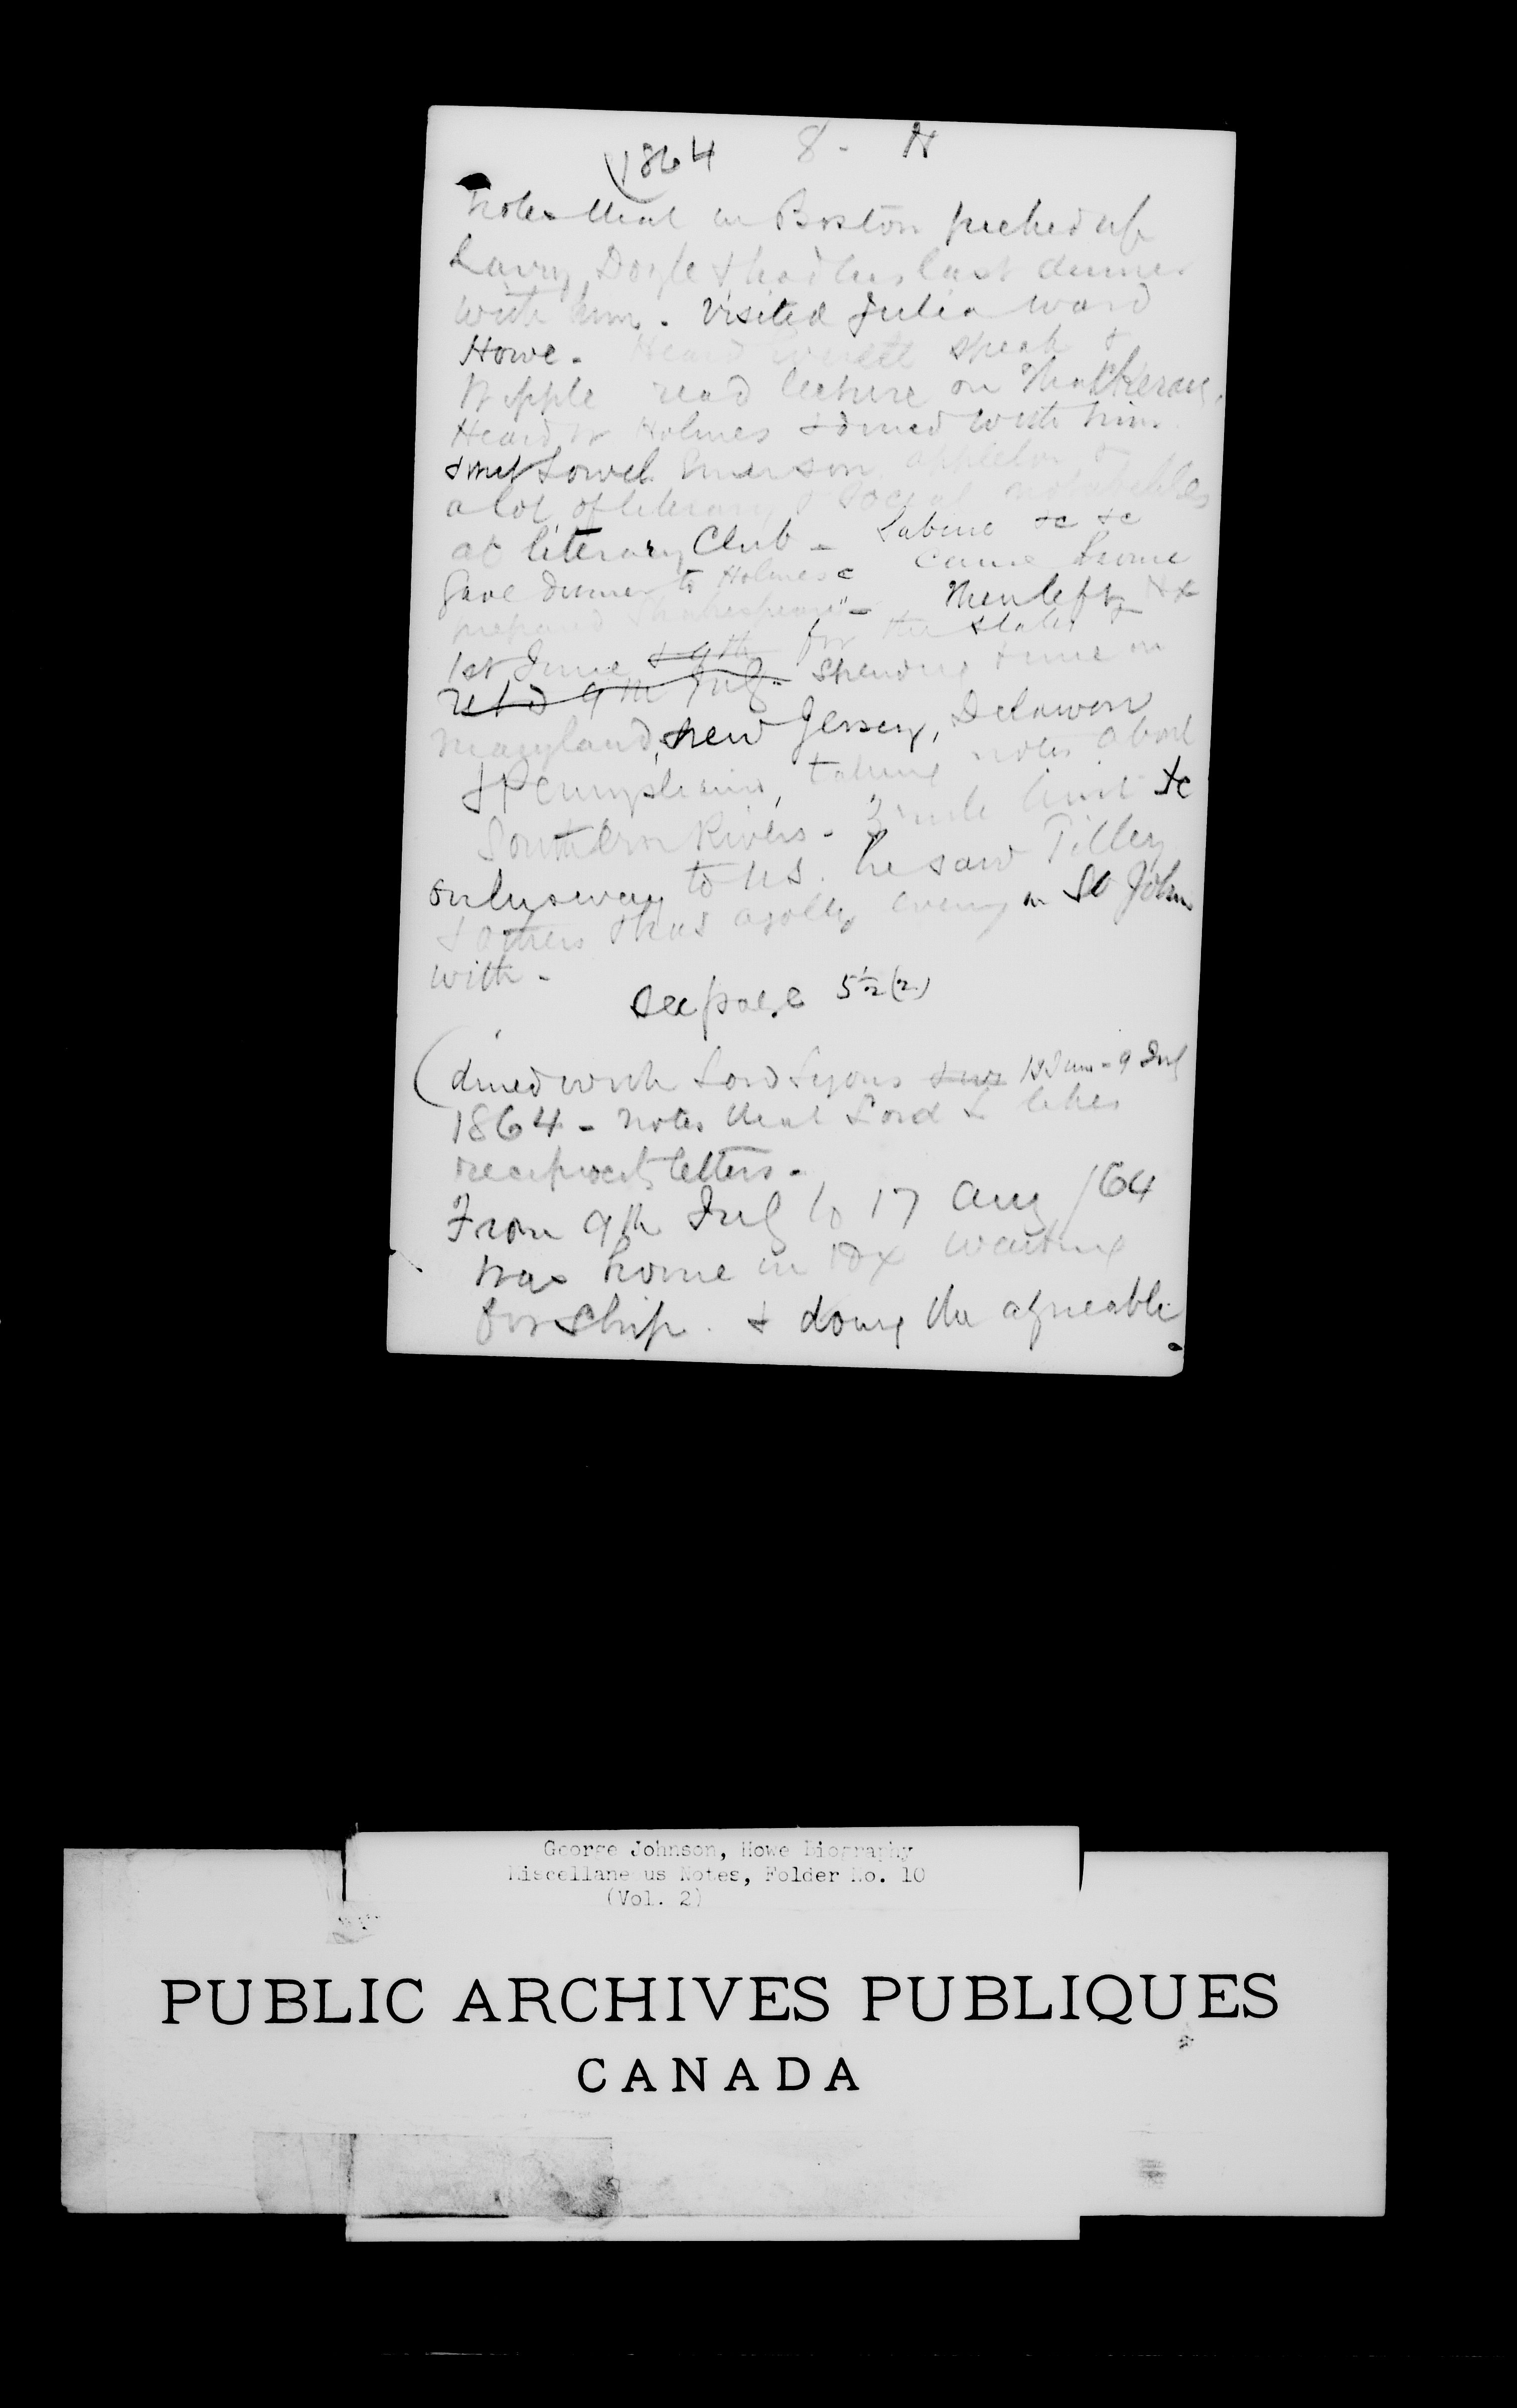 1864 8 - H
Notes that in Boston picked up
Larry Doyle & had his last dinner
with him. Visited Julia Ward
Howe. Heard Everett speak &
Wipple read lecture on Thackeray.
Heard Dr Holmes & dined with him
& met Lowell Emerson Appleton &
a lot of literary & social notabilities
at literary Club - Sabine &c &c
Gave dinner to Holmes Came home
prepared Shakespeare" - Then left Hx
1st June & 9th for the States
retd 9th July. spending time in
Maryland, New Jersey, Delaware
& Pennsylvania, taking notes about
Southern Rivers - 3 mile limit &c
on his way to US. he saw Tilley
& others & had a jolly evening in St John
with -
See page 5½(2)
(dined with Lord Lyons 1st June - 9 July
1864 - notes that Lord L likes
reciprocity letters -
From 9th July to 17 Aug /64
was home in Hx waiting
for ship. & doing the agreeable
George Johnson, Howe Biography
Miscellaneous Notes, Folder No. 10
(Vol. 2)
PUBLIC ARCHIVES PUBLIQUES
CANADA